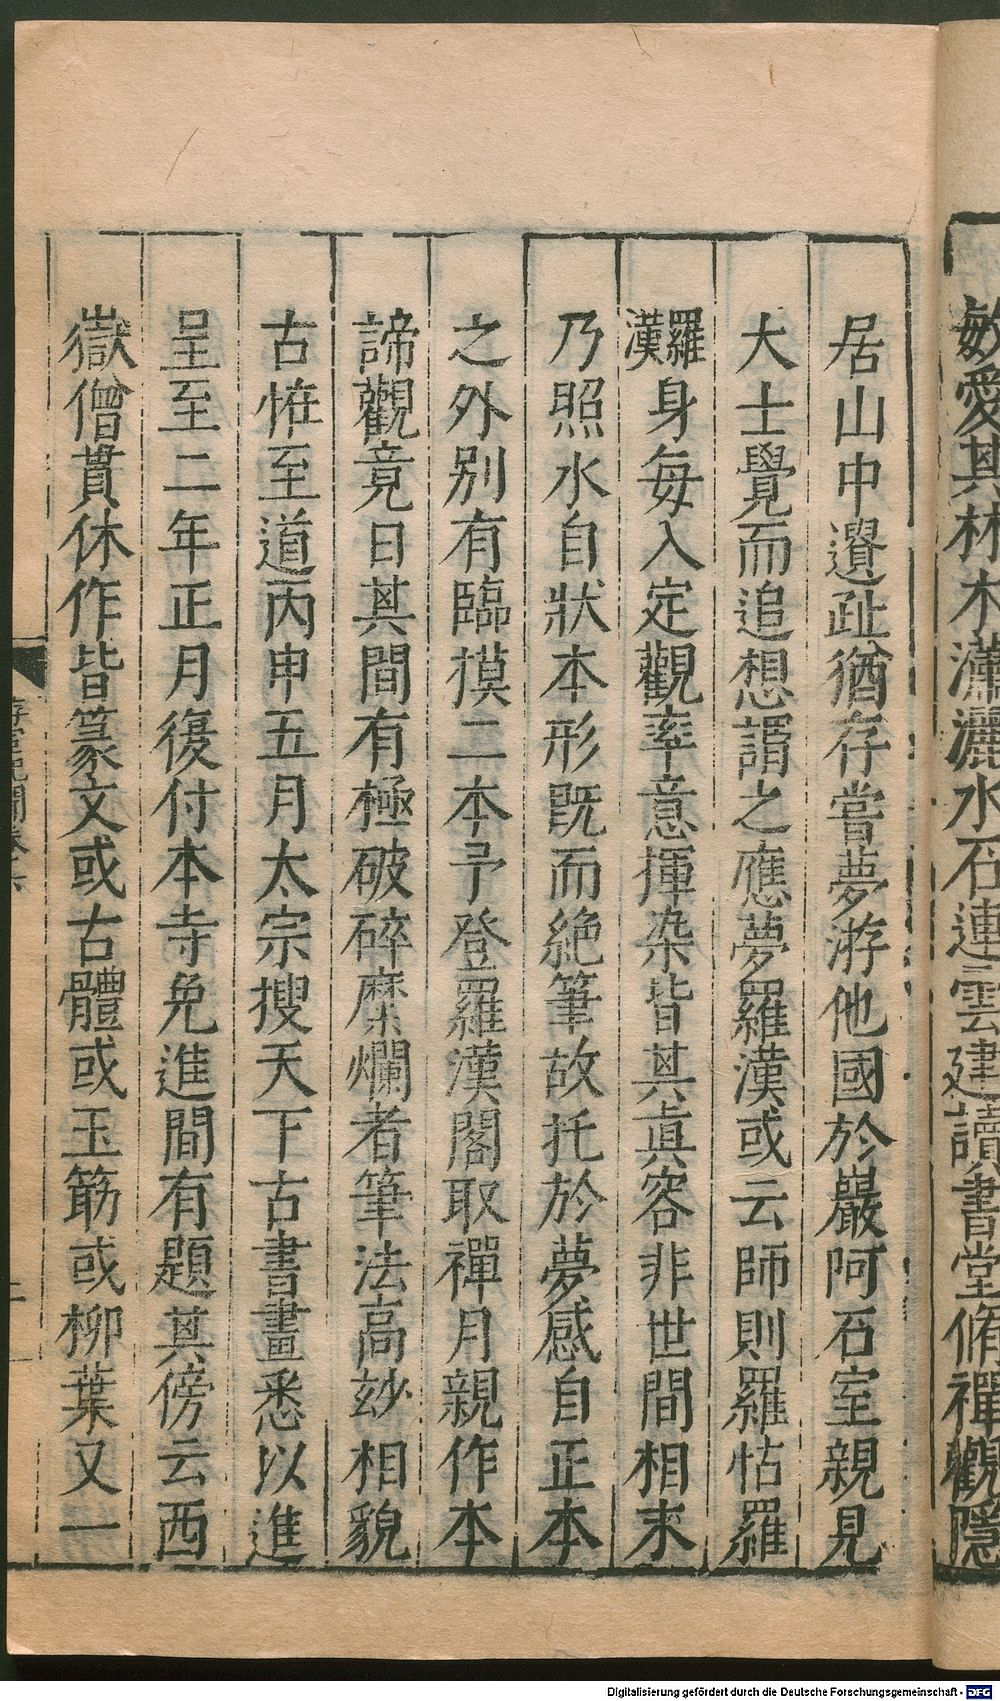 敏愛其林木瀟灑水石連雲建讀書堂脩禪觀隱
居山中遺趾猶存嘗夢游他國於巖阿石室親見
大士覺而追想謂之應夢羅漢或云師則羅怙羅
羅漢身每入定觀率意揮染皆其眞容非世間相末
乃照水自狀本形旣而絶筆故托於夢感自正本
之外别有臨摸二本予登羅漢閣取禪月親作本
諦觀竟日其間有極破碎糜爛者筆法高玅相貌
古恠至道丙申五月太宗搜天下古書畫悉以進
呈至二年正月復付本寺免進間有題其傍云西
嶽僧貫休作皆篆文或古體或玉筯或柳葉又一
Digitalisierung gefördert durch die Deutsche Forschungsgemeinschaft - DFG